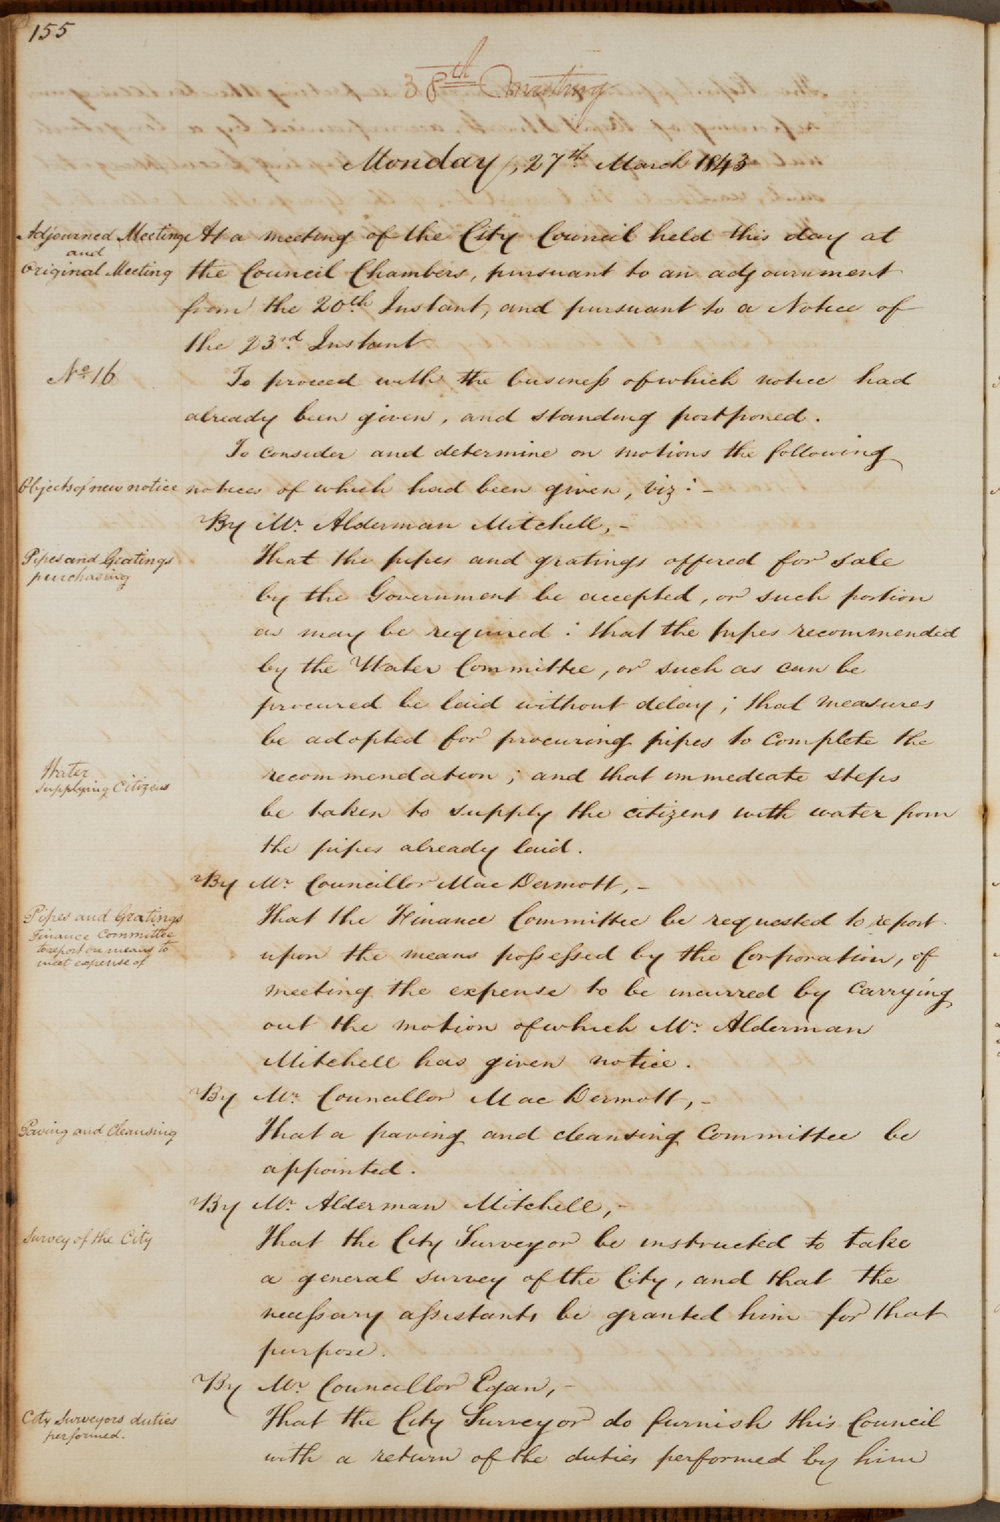 155
38th Meeting
Monday, 27th March 1843
Adjourned Meeting
and
Original Meeting
At a meeting of the City Council held this day at
the Council Chambers, pursuant to an adjournment
from the 20th Instant, and pursuant to a Notice of
the 23rd Instant
No 16
To proceed with the business of which notice had
already been given, and standing postponed.
To consider and determine on motions the following
Objects of new notice
notices of which had been given, viz: -
By Mr. Alderman Mitchell, -
Pipes and Gratings
purchasing
That the pipes and gratings offered for sale
by the Government be accepted, or such portion
as may be required: that the pipes recommended
by the Water Committee, or such as can be
procured be laid without delay; that measures
be adopted for procuring pipes to complete the
Water
supplying Citizens
recommendation; and that immediate steps
be taken to supply the citizens with water from
the pipes already laid.
By Mr. Councillor Mac Dermott, -
Pipes and Gratings
Finance Committee
to report on means to
meet expense of
That the Finance Committee be requested to report
upon the means possessed by the Corporation, of
meeting the expense to be incurred by carrying
out the motion of which Mr. Alderman
Mitchell has given notice.
By Mr. Councillor Mac Dermott, -
Paving and Cleansing
That a paving and cleansing Committee be
appointed.
By Mr. Alderman Mitchell, -
Survey of the City
That the City Surveyor be instructed to take
a general survey of the City, and that the
necessary assistants be granted him for that
purpose.
By Mr. Councillor Egan, -
City Surveyors duties
performed.
That the City Surveyor do furnish this Council
with a return of the duties performed by him